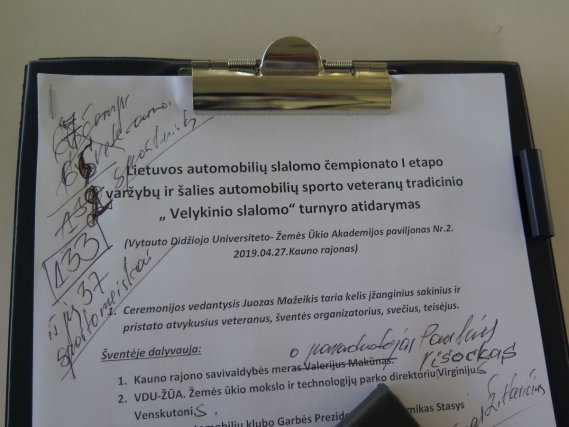 Lietuvos automobilių slalomo čempionato I etapo
varžybų ir šalies automobilių sporto veteranų tradicinio
„ Velykinio slalomo“ turnyro atidarymas
(Vytauto Didžiojo Universiteto- Žemės Ūkio Akademijos paviljonas Nr.2.
2019.04.27.Kauno rajonas)
133
iš jų 37
sportininkai
2. Ceremonijos vedantysis Juozas Mažeikis taria kelis įžanginius sakinius ir
pristato atvykusius veteranus, šventės organizatorius, svečius, teisėjus.
Šventėje dalyvauja:
o pavaduotojas Paulius
Visockas
1. Kauno rajono savivaldybės meras Valerijus Makūnas.
2. VDU-ŽŪA. Žemės ūkio mokslo ir technologijų parko direktorių Virginijus
Venskutonis.
mobilių klubo Garbės Prezide
mikas Stasys